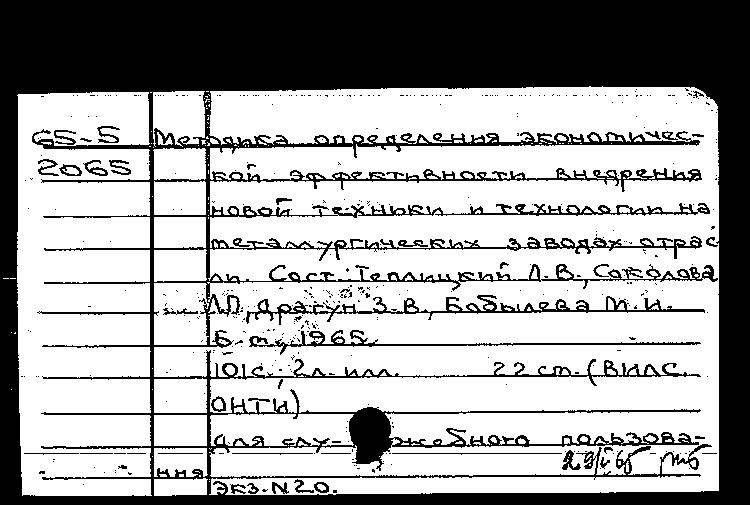 65-5 Методика определения экономичес-
2065 кой эффективности внедрения
новой техники и технологии на
металлургических заводах отрас
ли. Сост.: Теплицкий Л.В., Соколова
Л.П., Драгун З.В., Бобылева М.И.
Б.м., 1965.
101с., 2л. илл. 22 см. (ВИЛС.
ОНТИ).
Для слу- жебного пользова-
ния
Экз. N20.